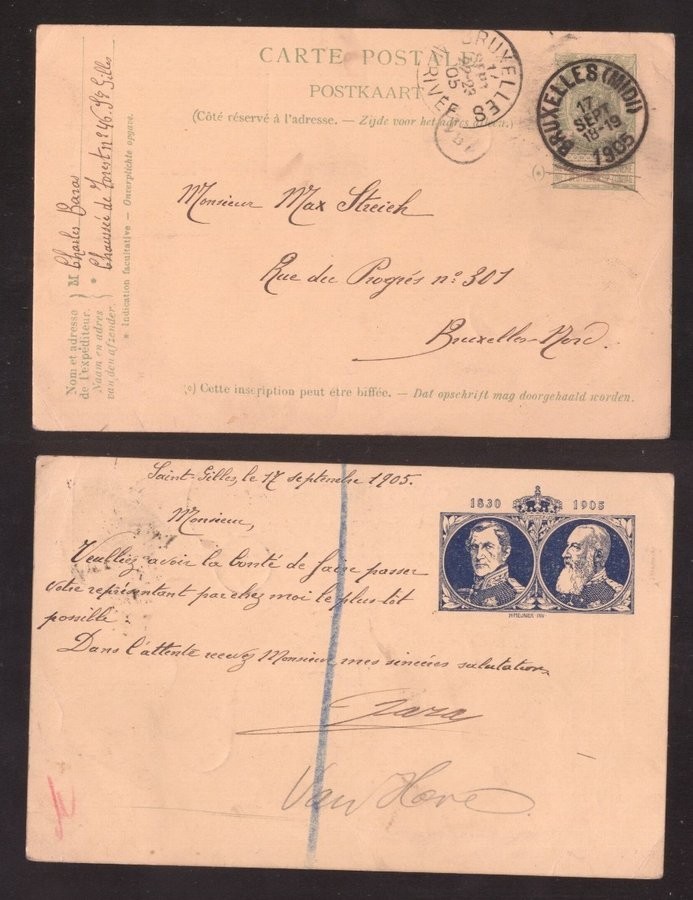 CARTE POSTALE
POSTKAART
(Côté réservé à l'adresse. — Zijde voor het adres
BRUXELLES
17 SEPT
23
05
ARRIVÉE
8
BRUXELLES (MIDI)
17
SEPT
18-19
1905
Monsieur Max Streich
Rue du Progrés n° 301
Bruxelles-Nord.
(o) Cette inscription peut être biffée. — Dat opschrift mag doorgehaald worden.
Nom et adresse
de l'expéditeur.
Naam en adres
van den afzender.
M Charles Baras
* Chaussée de Forest n° 46. St Gilles
* Indication facultative — Onverplichte opgave.
Saint-Gilles, le 17 septembre 1905.
1830 1905
Monsieur,
Veuillez avoir la bonté de faire passer
votre représentant par chez moi le plus tôt
possible.
Dans l'attente recevez Monsieur mes sincères salutations
Van Hove